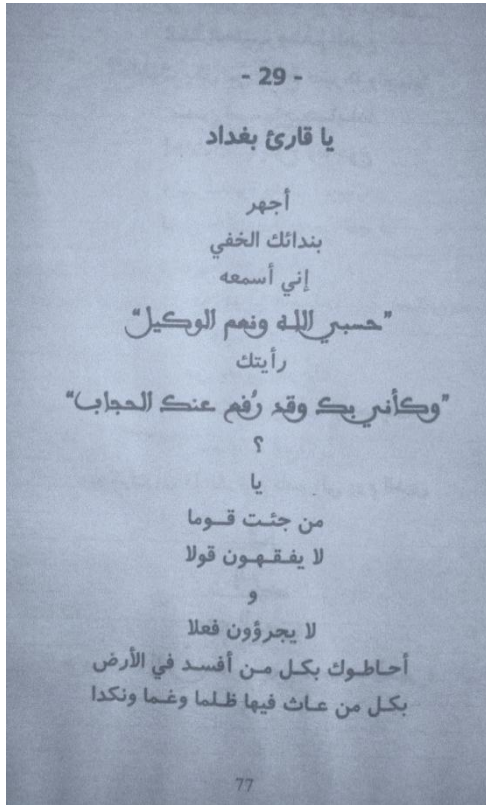 - 29 -
يا قارئ بغداد
أجهر
بندائك الخفي
إني أسمعه
"حسبي الله ونعم الوكيل"
رأيتك
"وكأني بك وقد رُفع عنك الحجاب"
؟
يا
من جئت قوما
لا يفقهون قولا
و
لا يجرؤون فعلا
أحاطوك بكل من أفسد في الأرض
بكل من عاث فيها ظلما وغما ونكدا
77